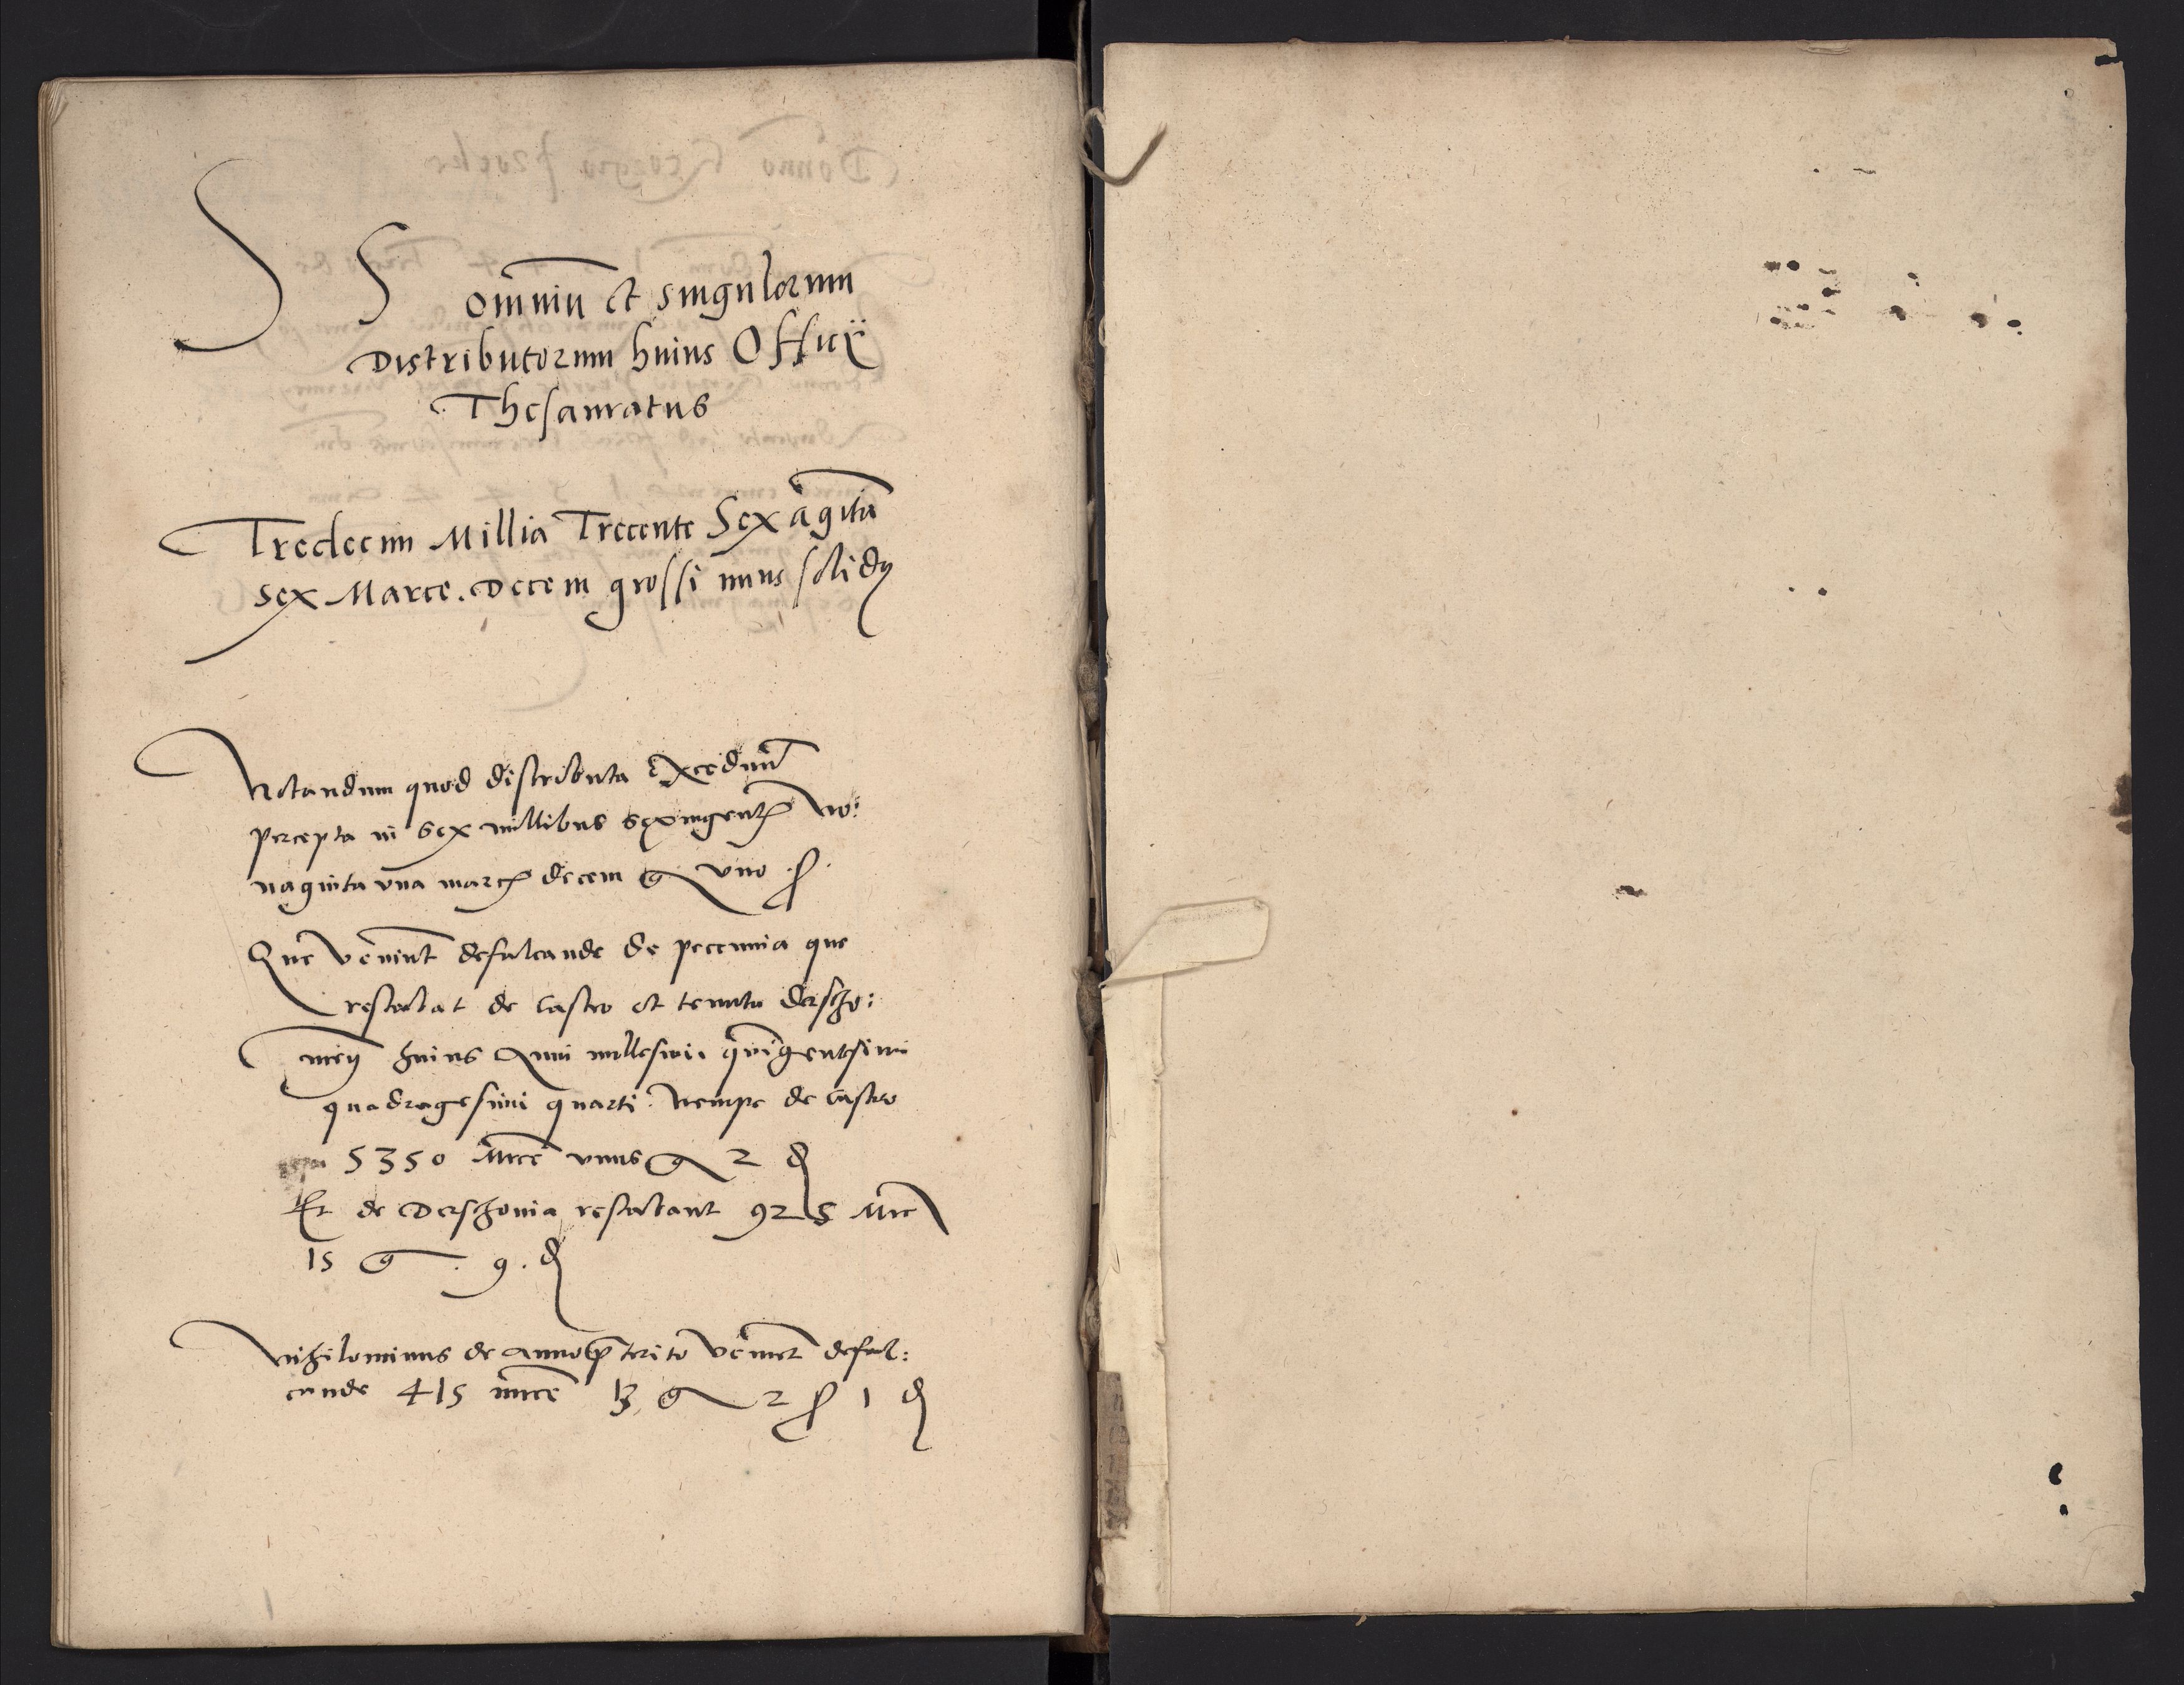 SS omniũ et singulorum
Distributorum huius Officÿ
Thesauratus
Tredecim Millia Trecente Sexaginta
sex Marce. Decem grossi unus solidꝫ
Notandum quod distributa excedunt
percepta in sex millibus sexingentꝫ no:
naginta una marcꝫ decem g uno ß
Que veniunt defalcande de peccunia que
restabat de castro et tenuta Derscho:
nieꝫ huius Anni millesimi quingentesimi
quadragesimi quarti. Nempe de castro
5350 Mrce unus g 2 ₰
Et de Derschonia restabant 925 Mrc
15 g. 9. ₰
Nihilominus de anno p̃terito venient defal:
cande 415 mrce 13 g 2 ß 1 ₰